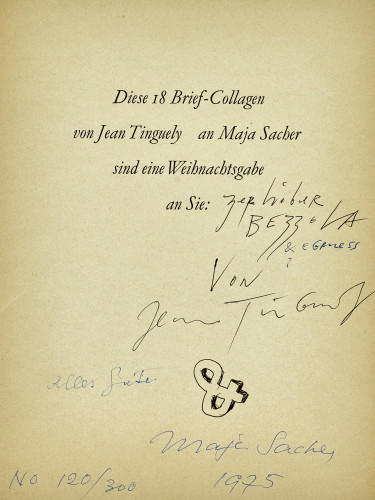 Diese 18 Brief-Collagen
von Jean Tinguely an Maja Sacher
sind eine Weihnachtsgabe
an Sie:
BEZZOLA
&
?
VON
Jean Tinguely
&
Alles Gute
Maja Sacher
No 120/300 1975